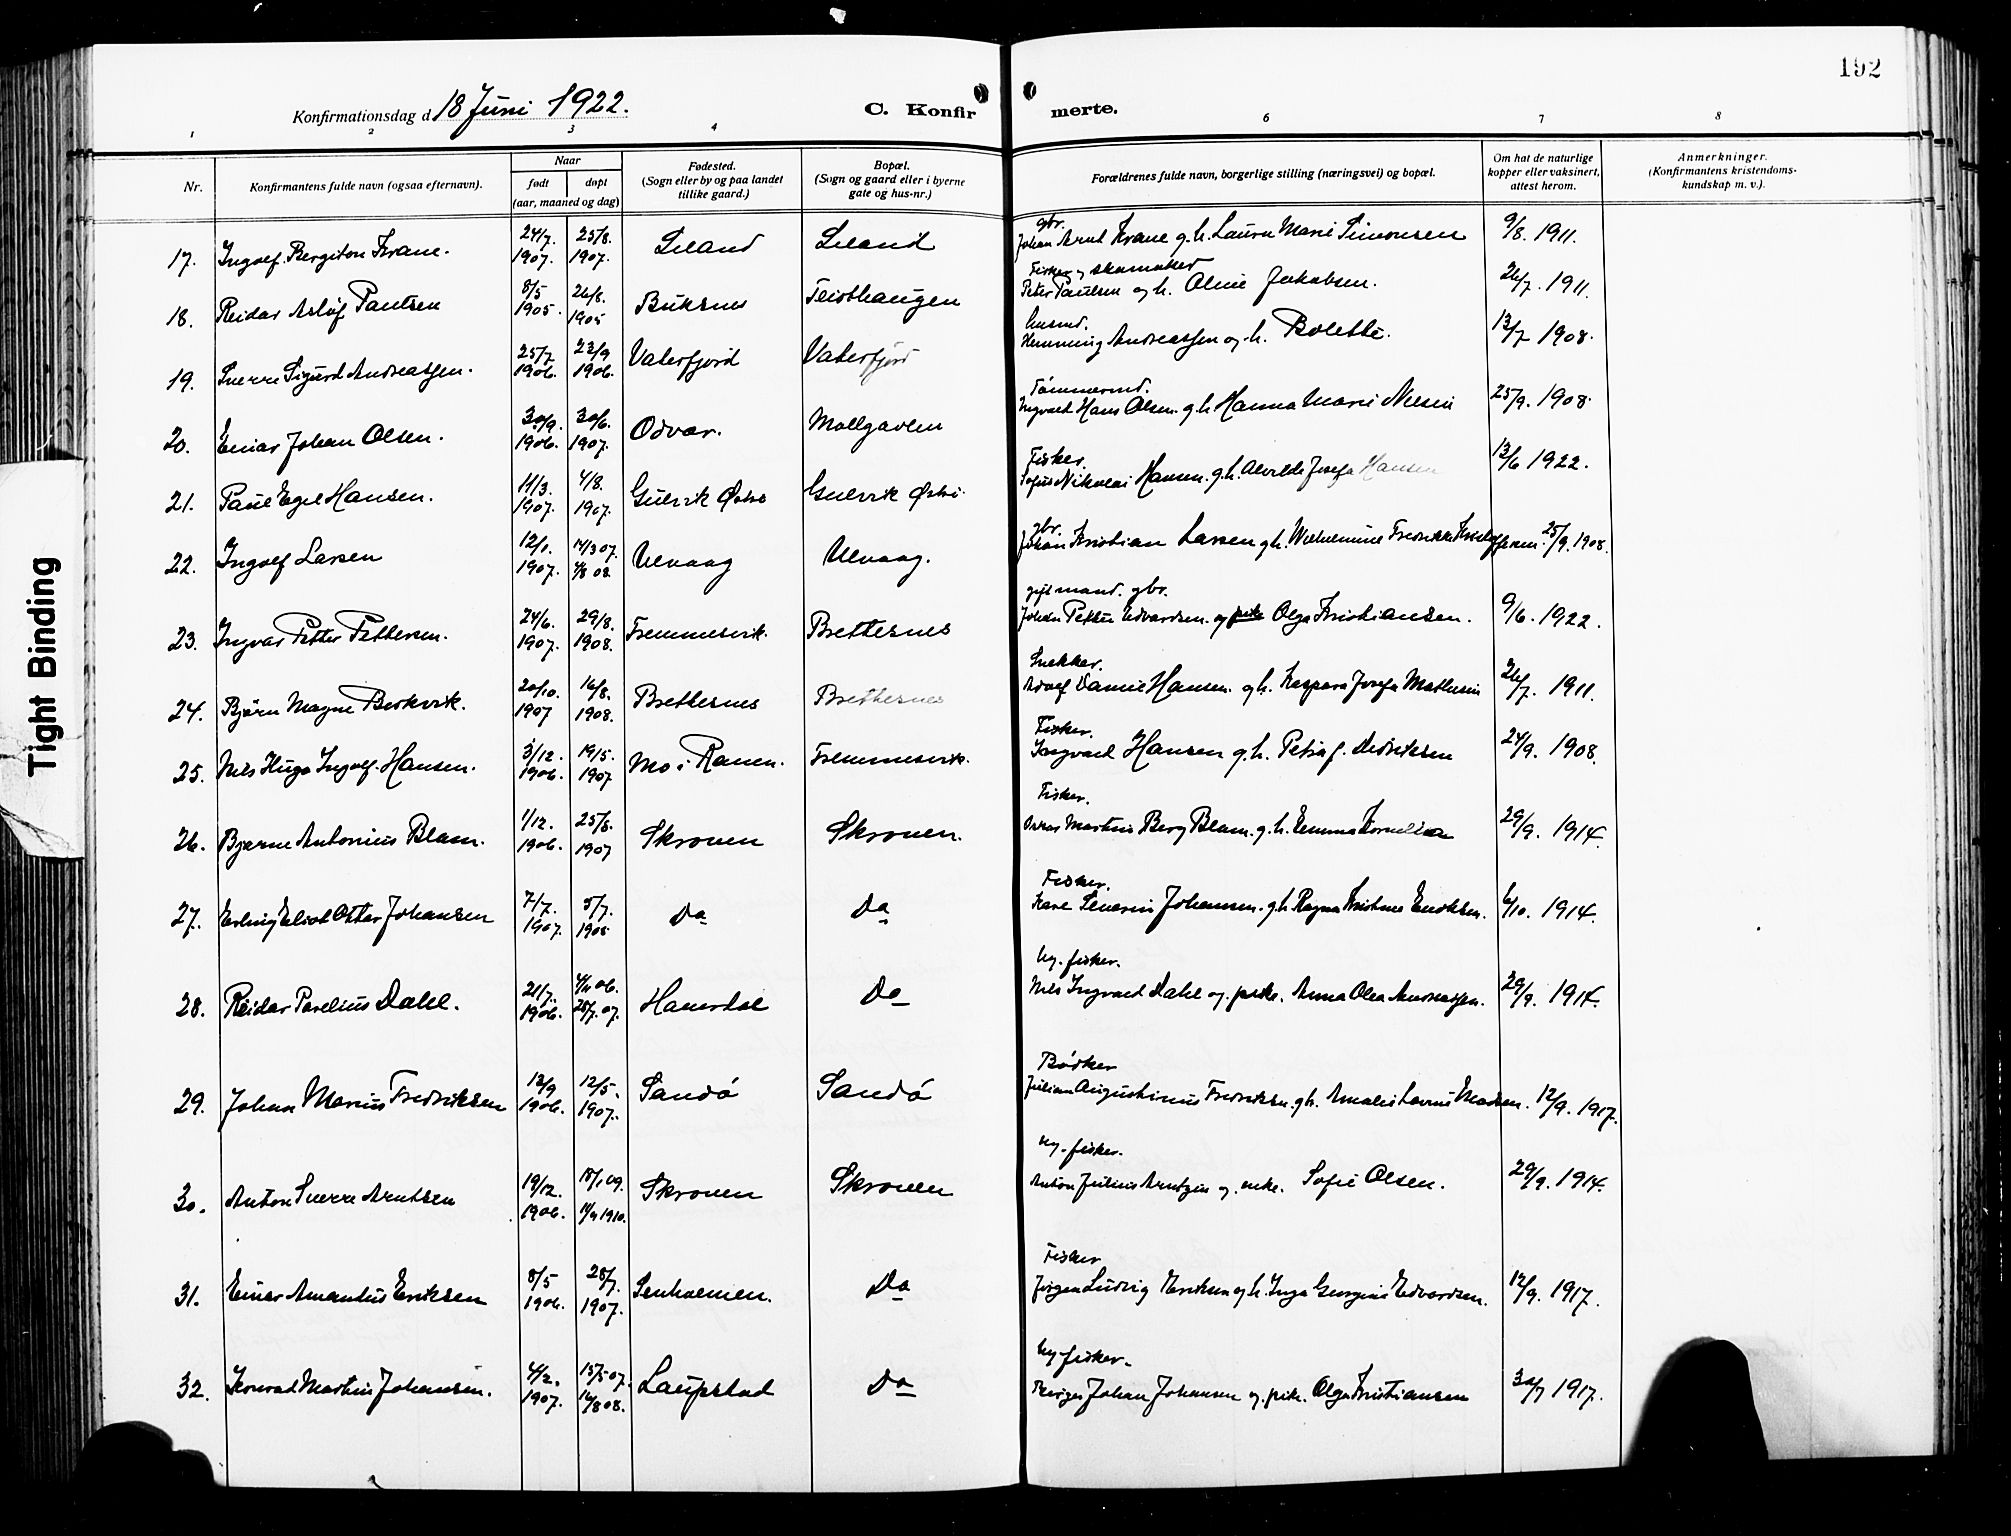 192
Konfirmationsdag d. 18 Juni 1922.
C. Konfir merte.
1 2 3 4 6 7 8
Nr.
Konfirmantens fulde navn (ogsaa efternavn).
Naar
født
døpt
(aar, maaned og dag)
Fødested.
(Sogn eller by og paa landet
tillike gaard.)
Bopæl.
(Sogn og gaard eller i byerne
gate og hus-nr.)
Forældrenes fulde navn, borgerlige stilling (næringsvei) og bopæl.
Om hat de naturlige
kopper eller vaksinert,
attest herom.
Anmerkninger.
(Konfirmantens kristendoms-
kundskap m. v.).
gbr.
17. Ingolf Bergiton Krane. 24/7. 1907. 25/8. 1907. Johan Arnt Krane g.h. Laura Marie Simonsen 9/8. 1911.
Fisker og skomaker
18. Reidar Aslöf Paulsen 8/5 1905. 26/8. 1905 Buksnes Teisthaugen Peter Paulsen og h. Aline Jakobsen. 26/7. 1911.
husmd.
19. Sverre Sigurd Andreassen. 25/7 1906. 23/9 1906. Vaterfjord Vaterfjord Hemming Andreassen og h. Bolette. 13/7 1908.
Tømmermd.
20. Einar Johan Olsen. 30/9. 1906. 30/6. 1907. Odvær. Mollgavlen Ingvald Hans Olsen. g.h. Hanna Marie Nilsen 25/9. 1908.
Fisker.
21. Paul Egil Hansen. 11/3. 1907. 4/8. 1907. Gulvik Østre Gulvik Østre Sofus Nikolai Hansen. g.h. Alvilde Josefa Hansen 13/6 1922.
gbr.
22. Ingolf Larsen 12/1. 1907. 14/3 07. 4/8 08. Ulvaag Ulvaag. Johan Kristian Larsen g.h. Wilhelmine Fredrikke 25/9. 1908.
gift mand. gbr.
23. Ingvar Petter Pettersen. 24/6. 1907. 29/8. 1908. Fremmesvik. Brettesnes Johan Petter Edvardsen. og pike Olga Kristiansen. 9/6. 1922.
Snekker.
24. Bjørn Magne Birkvik. 20/10. 1907 16/8. 1908. Brettesnes Brettesnes Adolf Daniel Hansen. g.h. Kaspara Josefa Mathisen 26/7. 1911.
Fisker.
25. Nils Hugo Ingolf Hansen. 3/12. 1906. 19/5. 1907 Mo i Ranen. Fremmesvik. Ingvald Hansen g.h. Petra f. Didriksen 24/9. 1908.
Fisker.
26. Bjarne Antonius Blam. 1/12. 1906. 25/8. 1907 Skroven Skroven. Oskar Martin Berg Blam. g.h. Emma Kornelia 29/9. 1914.
Fisker.
27. Erling Eliot Otter Johansen 7/7. 1907. 5/7. 1908 Do Do Kare Severin Johansen. g.h. Ragna Kristine Eriksen. 6/10. 1914.
ug. fisker.
28. Reidar Parelius Dahl. 21/7. 1906. 4/11 06. 28/7. 07. Do Nils Ingvald Dahl og. pike. Anna Olea Andreassen. 29/9. 1914.
Bødker
29. Johan Marius Fredriksen 12/9 1906. 12/5. 1907. Sandø Sandø Julian Augustinius Fredriksen. g.h. Amalie Lovise Madsen. 12/9. 1917.
ug. fisker.
30. Anton Sverre Arntsen 19/12. 1906. 18/1 09. 11/9 1910. Skroven Skroven Anton Julius Arntzen og. enke. Sofie Olsen. 29/9. 1914.
Fisker
31. Einar Amandus Eriksen 8/5 1906. 28/7. 1907. Senholmen. Do Jørgen Ludvig Eriksen og h. Inga Georgine Edvardsen. 12/9. 1917.
ug. fisker.
32. Konrad Martin Johansen. 4/2. 1907. 13/5 07. 16/8 08. Laupstad Do Birger Johan Johansen og. pike. Olga Kristiansen 30/7 1917.
Tight Binding